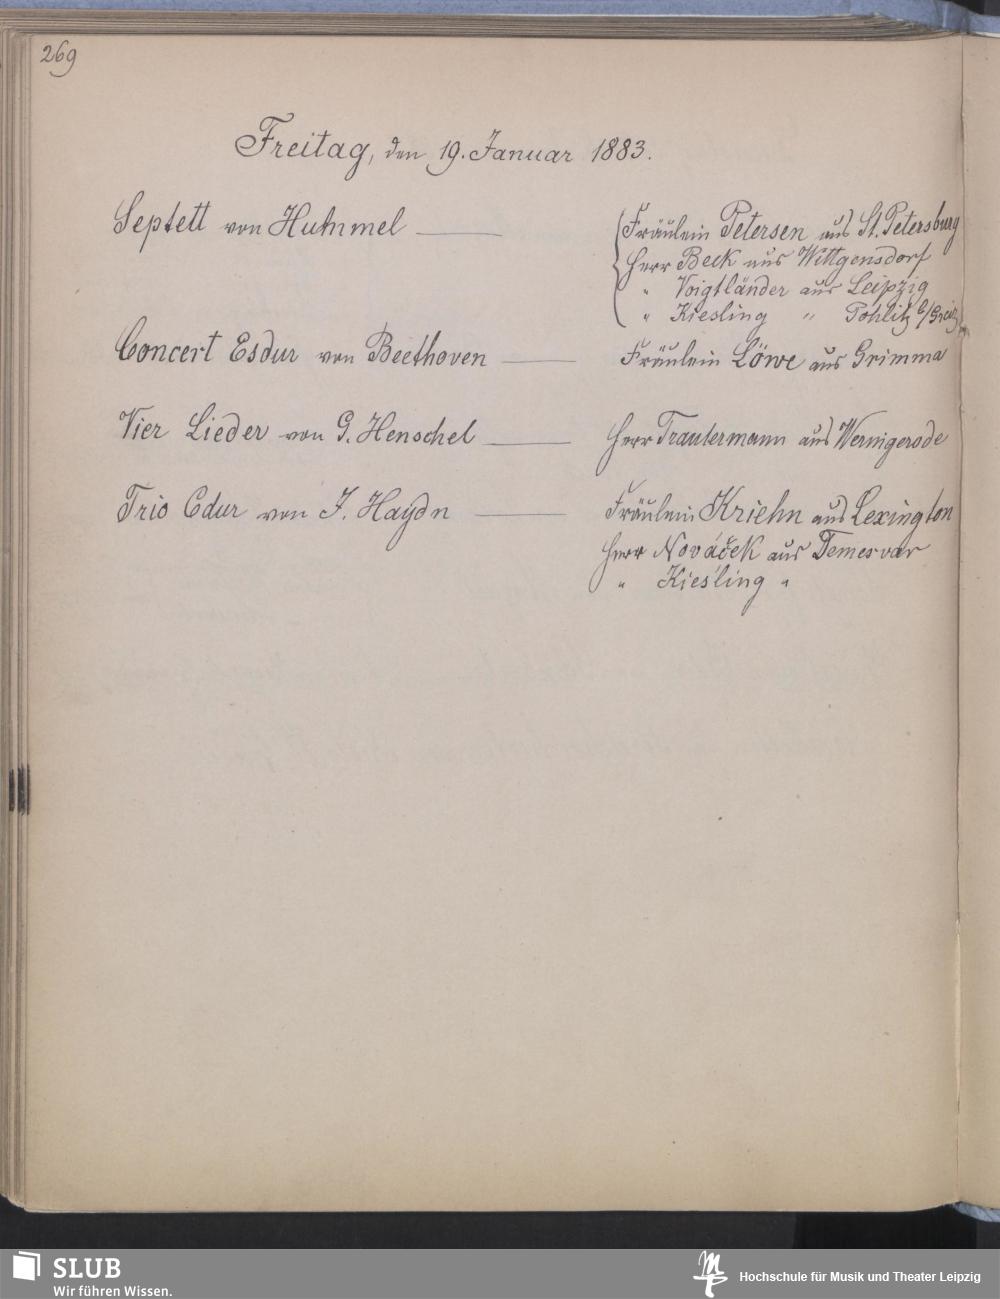 269
Freitag, den 19. Januar 1883.
Septett von Hummel — Fräulein Petersen aus St. Petersburg
Herr Beck aus Wittgensdorf
" Voigtländer aus Leipzig
" Kiesling " Pohlitz b/Greiz
Concert Esdur von Beethoven — Fräulein Löwe aus Grimma
Vier Lieder von G. Henschel — Herr Trautermann aus Wernigerode
Trio Cdur von J. Haydn — Fräulein Kriehn aus Lexington
Herr Nováček aus Temesvar
" Kiesling "
SLUB
Wir führen Wissen.
Hochschule für Musik und Theater Leipzig